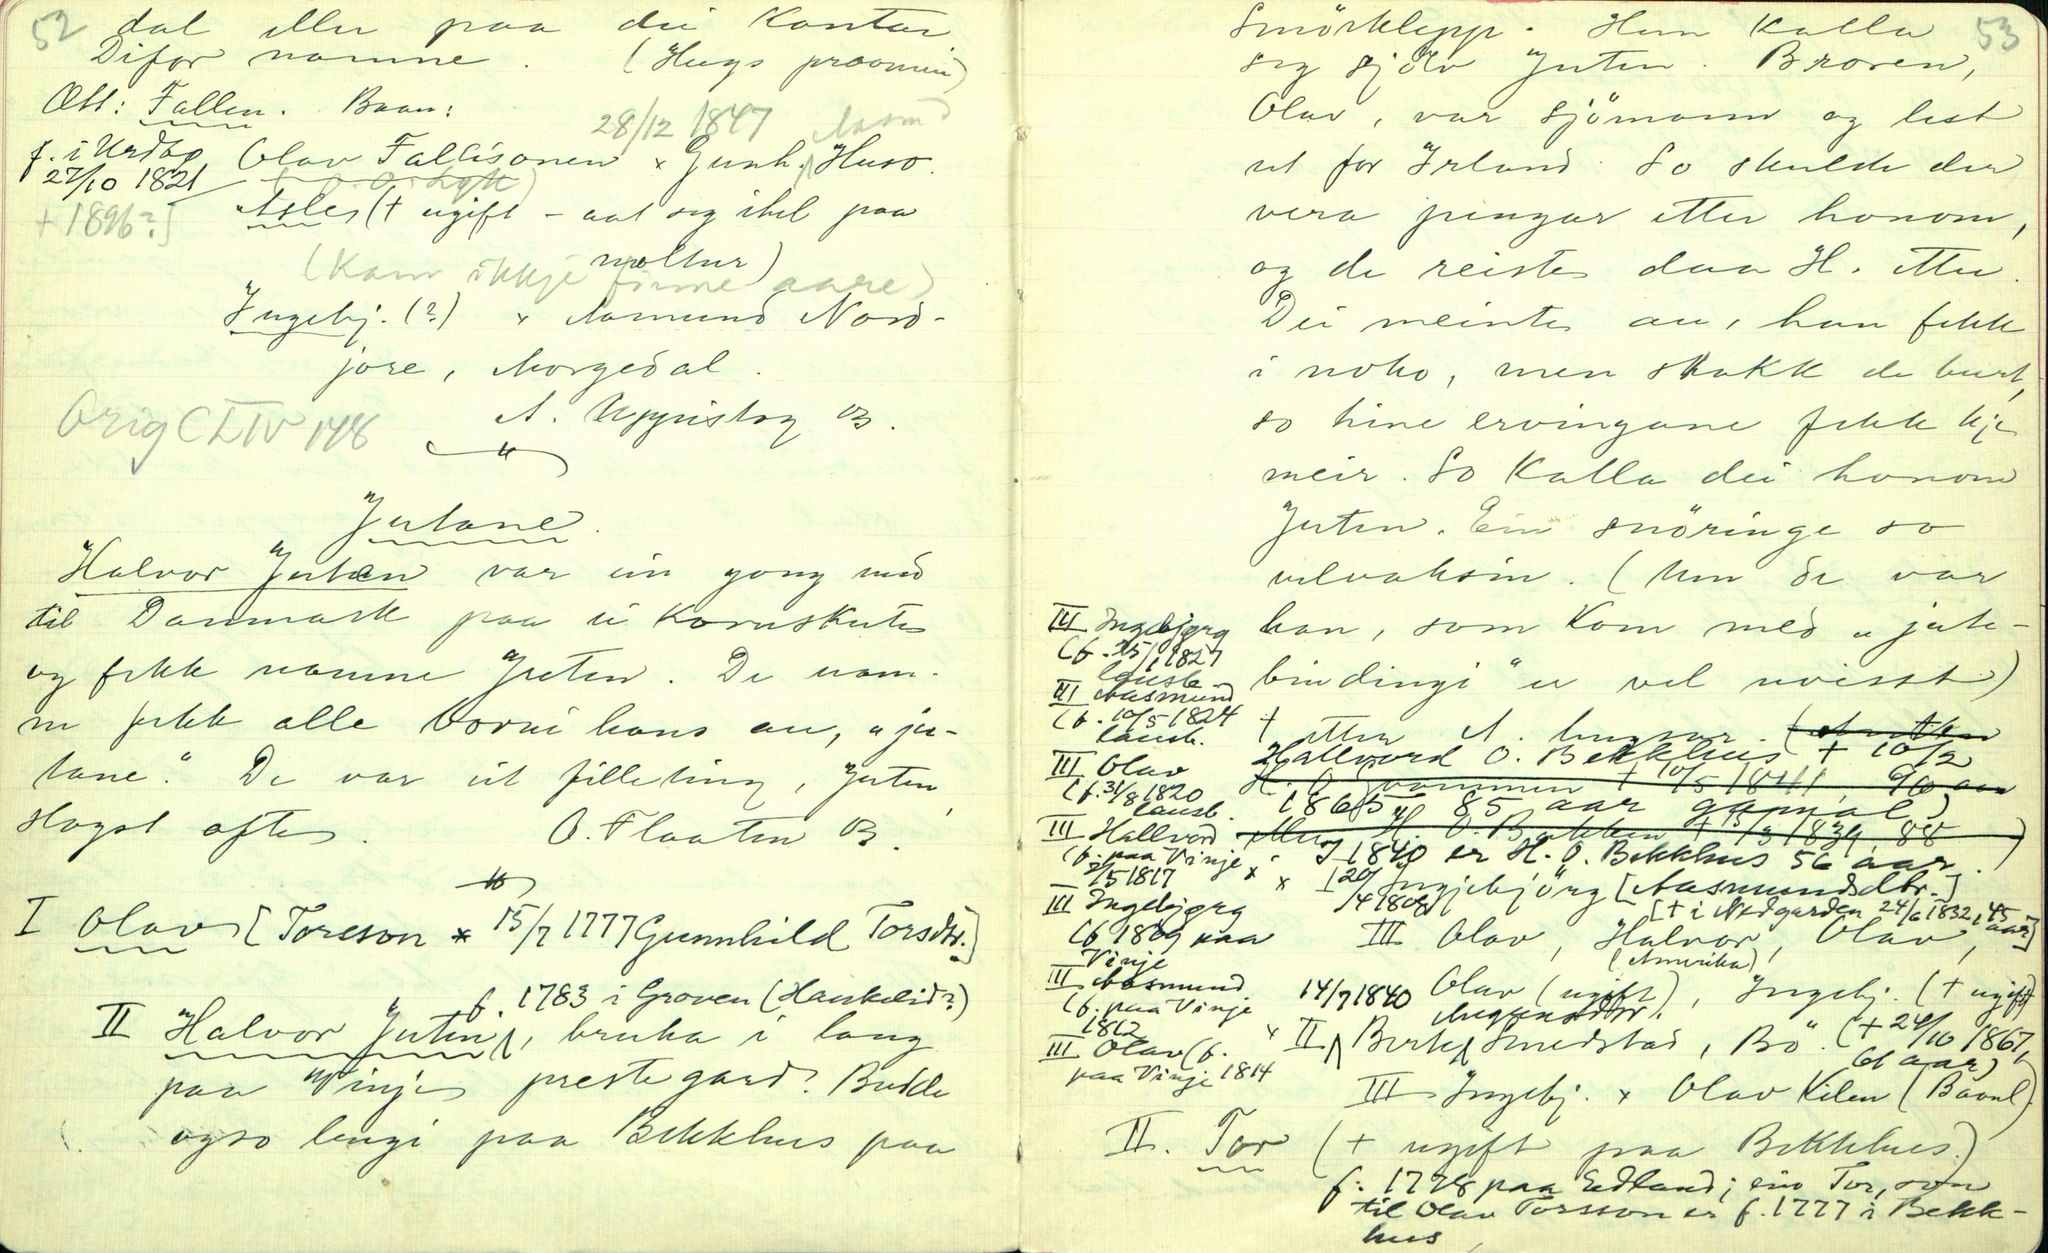 52
dal eller paa dei kantar
Difor namne. (Hugs
Ætt: Fallen. Baan:
28/12 1847 Aasmd
f. i Urdbø Olav Fallisonen × Gunh. Huso.
27/10 1821
+ 1896?]
Asle (+ ugift – aat seg ihel paa
moltur)
(Kann ikkje finne aare)
Ingebj. (?) × Aamund Nord-
jore, Morgedal.
A. Uppistog B.
Orig CLIV 148
Jutane.
Halvor Juten var ein gong med
til Danmark paa ei kornskute
og fekk namne Juten. De nam-
ne fekk alle borni hans au, "ju-
tane." De var eit filleting, Juten,
slogst ofte. O. Flaaten B.
I Olav [Toreson × 15/7 1777 Gunnhild Torsdtr.]
f. 1783 i Groven (Haukelid?)
II Halvor Juten, bruka i lang
paa Vinje prestegard. Budde
ogso lengi paa Bekkhus paa
53
Smörklepp. Han kalla
seg sjölv Juten. Broren,
Olav, var sjömann og lest
ut for Irland. So skulde der
vera pengar etter honom,
og de reiste daa H. etter.
Dei meinte au, han fekk
i noko, men stakk de burt,
so hine ervingane fekk kje
meir. So kalla dei honom
Juten. Ein snöringe so
velvaksin. (Um de var
han, som kom med "jute-
bindingi" er vel uvisst)
III Ingebjørg
(f. 25/1 1827
lausb.
III Aasmund
(f. 10/5 1824
lausb.
III Olav
(f. 31/8 1820
lausb.
III Hallvord
(f. paa Vinje
2/5 1817
III Ingebjørg
(f 1809 paa
Vinje
III Aasmund
(f. paa Vinje
1812
III Olav (f.
paa Vinje 1814
+ etter A. hugsar.
Hallvord O. Bekkhus + 10/2
H. O. + 10/5 1841, 90 aar
1865, 85 aar gamal)
eller H. O. Bakken + 15/3 1839 88
I 1840 er H. O. Bekkhus 56 aar.)
× I 20/4 1808 Ingjebjörg [Aasmundsdtr.]
[+ i Nedgarden 24/6 1832, 45 aar]
III Olav, Halvor, Olav,
(Amerika)
Olav (ugift), Ingebj. (+ ugift)
14/7 1840
× II Birte Smedstad, Bö. (+ 24/10 1867,
61 aar)
III Ingebj. × Olav Kilen (Baanl)
II. Tor (+ ugift paa Bekkhus.)
f. 1778 paa Edland; ein Tor, son
til Olav Torsson er f. 1777 i Bekk-
hus